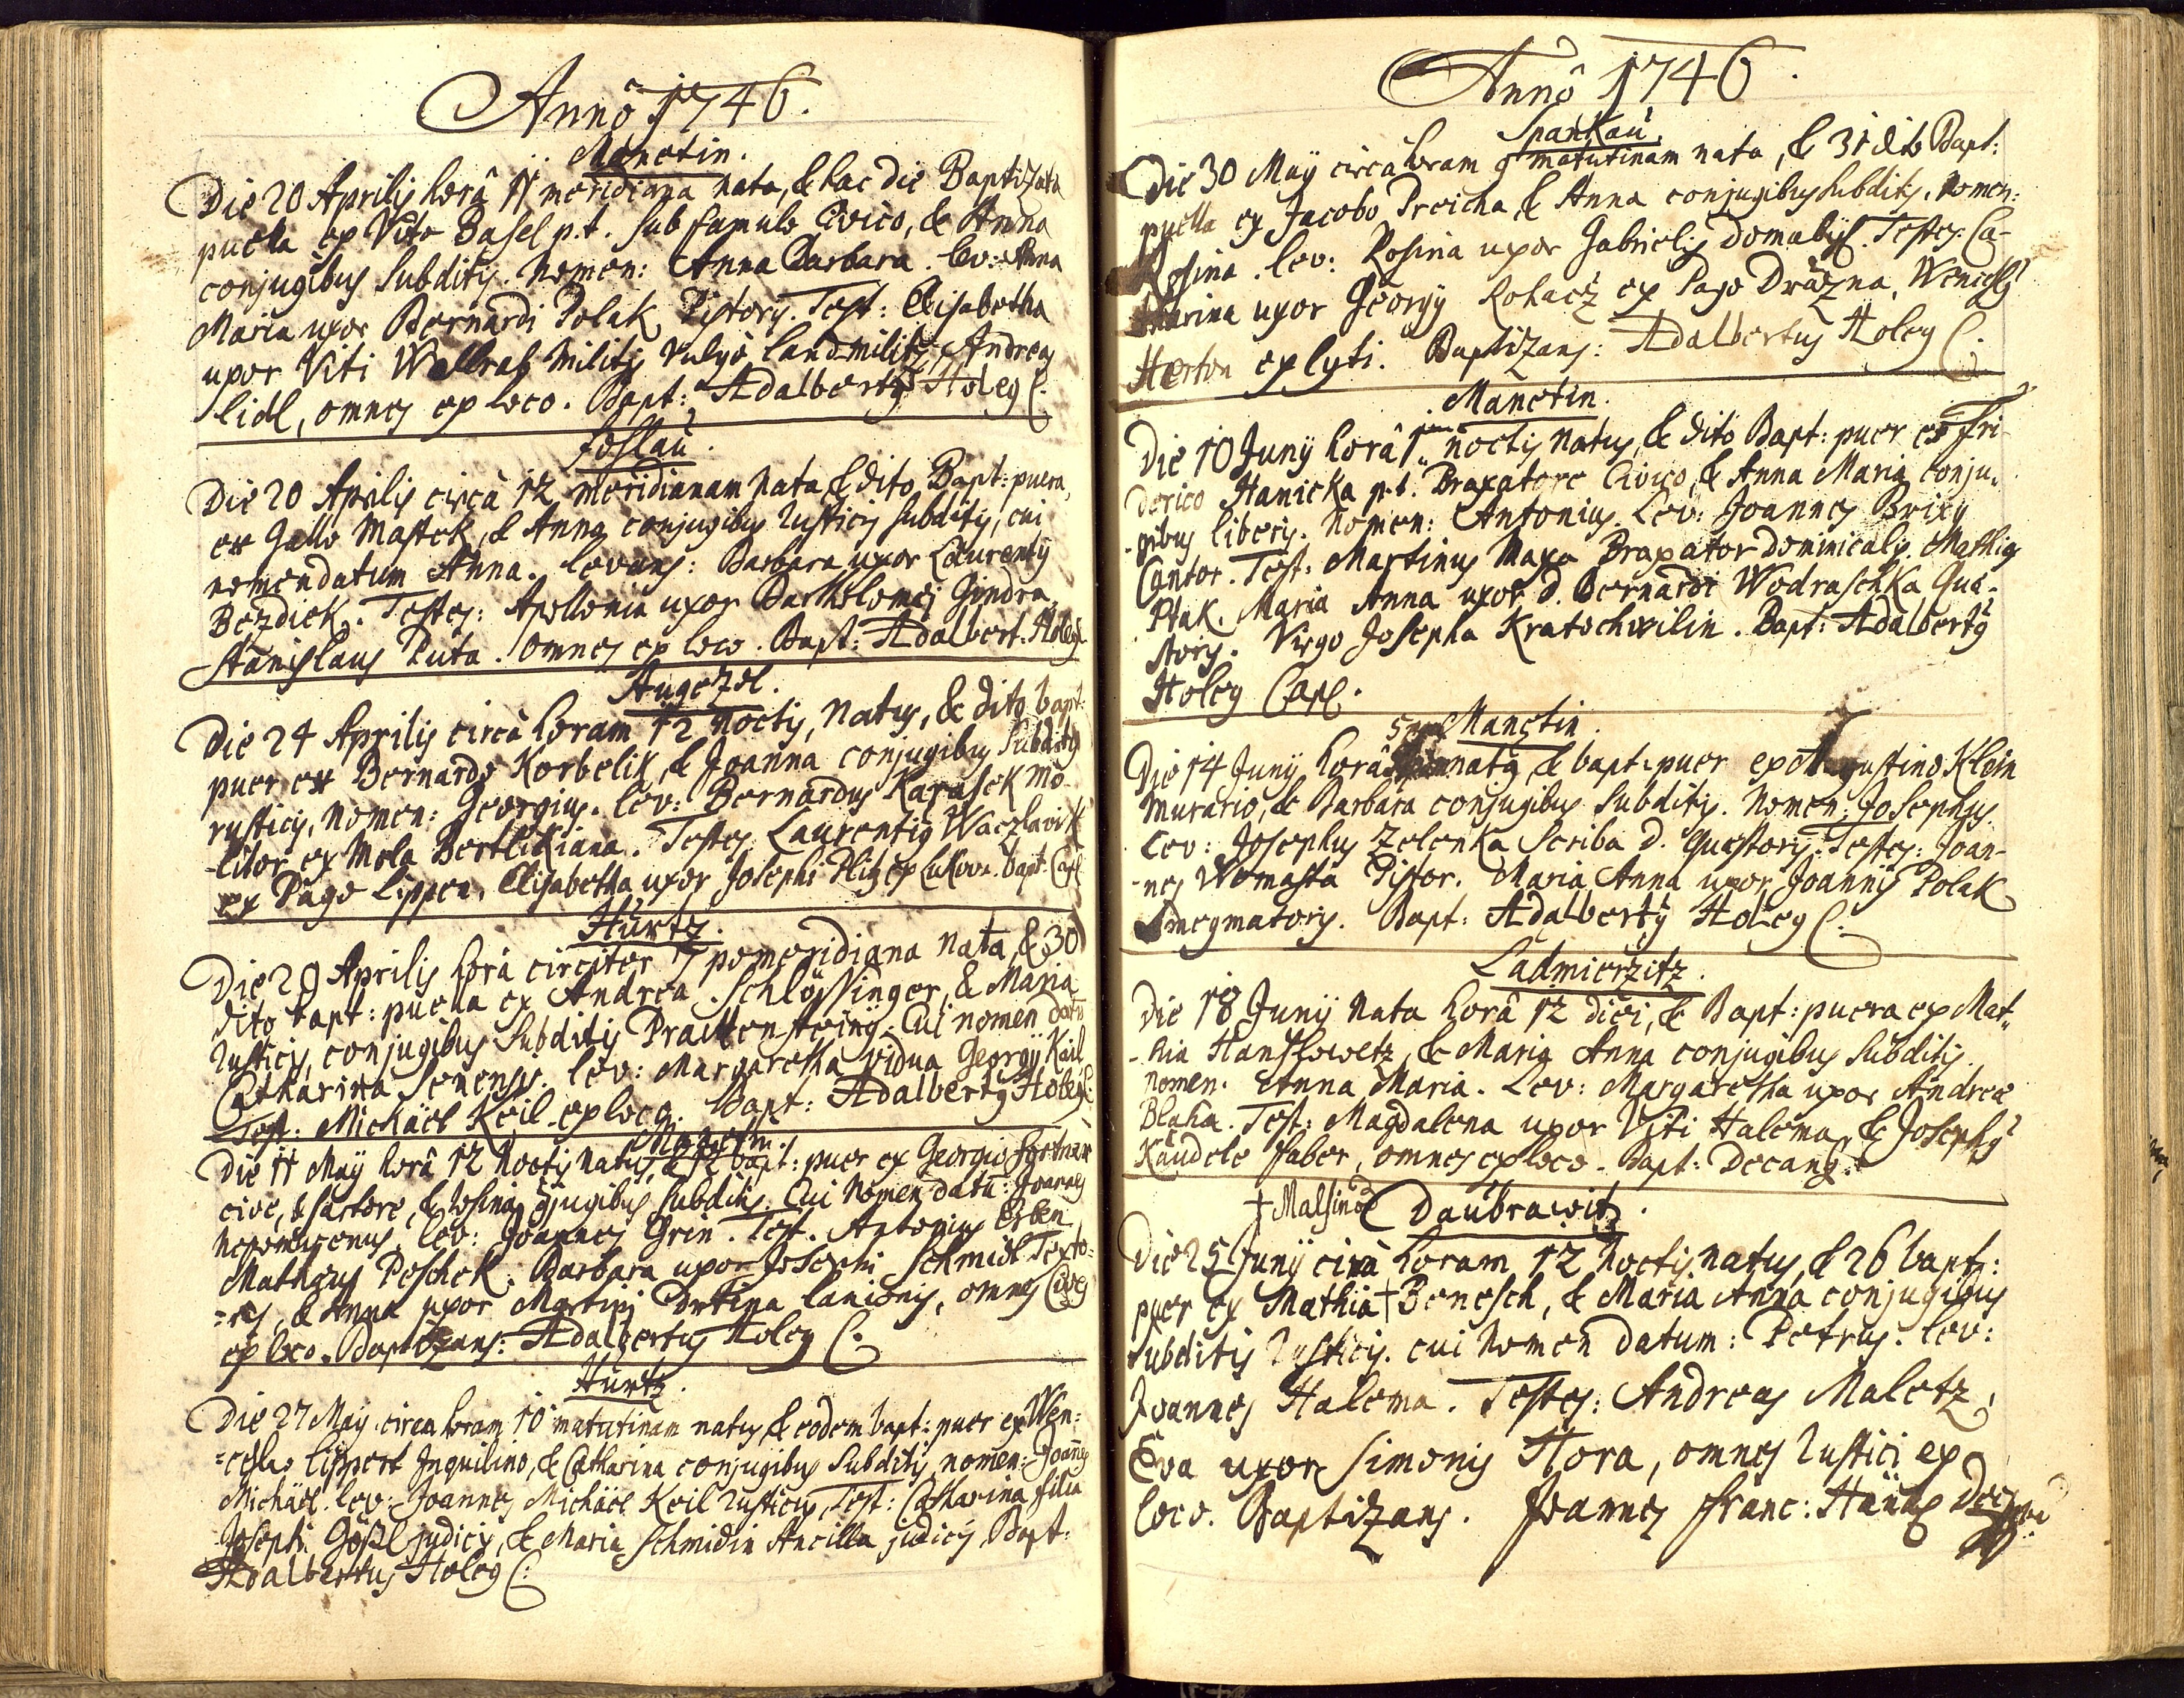 Annô 1746.
Manetin.
Die 20 Aprilis horâ 11 meridiana nata, & hac die Baptizata
puella ex Vito Basel p.t. sub famulo Civico, & Anna
conjugibus subditis. Nomen: Anna Barbara. lev: Anna
Maria uxor Bernardi Polak Pistoris. Test: Elisabetha
uxor Viti Wallraf militis vulgò Landmilitz, Andreas
Lidl, omnes ex loco. Bapt: Adalbertus Holey C.
Loslau.
Die 20 Aprilis circà 12 meridianam nata & dito Bapt: puera,
ex Gallo Mastek, & Anna conjugibus rusticis subditis, cui
nomen datum Anna. levans: Barbara uxor Laurentÿ
Bezdiek. Testes: Apollonia uxor Bartholomæi Gindra,
Stanislaus Puta. omnes ex loco. Bapt: Adalbert. Holey C.
Augezdl.
Die 24 Aprilis circà horam 12 noctis, natus, & dito bapt:
puer ex Bernardo Korbelik, & Joanna conjugibus subditis
rusticis, Nomen: Georgius. lev: Bernardus Karasek mo-
-litor ex Mola Bertlikiana. Testes Laurentius Waczlavik
ex Pago Lippen, Elisabetha uxor Josephi Plitz ex Lukowa. bapt. Capl
Hurtz.
Die 29 Aprilis horâ circiter 7 pomeridiana nata, & 30
dito bapt: puella ex Andrea Schlössinger, & Maria
rusticis, conjugibus subditis. Cui nomen datū
Catharina Senensis. lev: Margaretha vidua Georgÿ Keil
Test: Michäel Keil ex loco. Bapt: Adalbertus Holey C.
Manetin.
Die 11 Maÿ horâ 12 noctis natus, & 12 bapt: puer ex Georgio Fortner
cive, & sartore, & Rosina conjugibus subditis. Cui nomen datū: Joannes
Nepomucenus, lev: Joannes Grin. Test. Antonius Erben,
Mathæus Peschek. Barbara uxor Josephi Schmidt Texto-
=ris, & Anna uxor Martini Portina lanionis, omnes Cives
ex loco. Baptizans: Adalbertus Holey C.
Hurtz.
Die 27 Maÿ circa horam 10 matutinam natus & eodem bapt: puer ex Wen:
=ceslao Lippert Inquilino, & Catharina conjugibus subditis, nomen: Joannes
Michäel. lev: Joannes Michäel Keil rusticus, Test: Catharina filia
Josephi Gößl judicis, & Maria Schmidin Ancilla judicis Bapt:
Adalbertus Holey C:
Annô 1746.
Spankau.
Die 30 Maÿ circa horam 9 matutinam nata, & 31 dito Bapt:
puella ex Jacobo Preicha & Anna conjugibus subditis, nomen:
Rosina. lev: Rosina uxor Gabrielis Domabÿl. Testes: Ca-
tharina uxor Georgÿ Rohacž ex Pago Drázna, Wenceslaus
Herton ex lyti. Baptizans: Adalbertus Holey C.
Manetin.
Die 10 Junÿ horâ 1 noctis natus, & dito Bapt: puer ex Fri-
derico Hanicka p.t. Braxatore Civico, & Anna Maria conju-
-gibus liberis. Nomen: Antonius. Lev: Joannes Brixy
Cantor. Test: Martinus Maxa Braxator dominicalis. Mathias
Ptak. Maria Anna uxor d. Bernardi Wodraschka Quæ-
storis. Virgo Josepha Kratochwilin. Bapt: Adalbertus
Holey Capl.
Manetin.
Die 14 Junÿ horâ natus & bapt: puer ex Augustino Klein
murario, & Barbara conjugibus subditis. Nomen: Josephus.
Lev: Josephus Zelenka Scriba d. Quæstoris. Testes: Joan-
-nes Womasta Pistor. Maria Anna uxor Joannis Polak
Smegmatoris. Bapt: Adalbertus Holey C.
Ladmierzitz.
Die 18 Junÿ nata horâ 12 diei, & Bapt: puera ex Mat-
-hia Hanslowetz, & Maria Anna conjugibus subditis.
nomen. Anna Maria. Lev: Margaretha uxor Andreæ
Blaha. Test: Magdalena uxor Viti Halema, & Josephus
Kaudele faber, omnes ex loco. Bapt: Decanus.
† Malsinod Daubrawitz.
Die 25 Junÿ circà horam 12 noctis natus, & 26 bapt:
puer ex Mathia † Benesch, & Maria Anna conjugibus
subditis rusticis. cui nomen datum: Petrus. lev:
Joannes Halema. Testes: Andreas Maletz,
Eva uxor Simonis Hora, omnes rustici ex
loco. Baptizans. Joannes Franc: